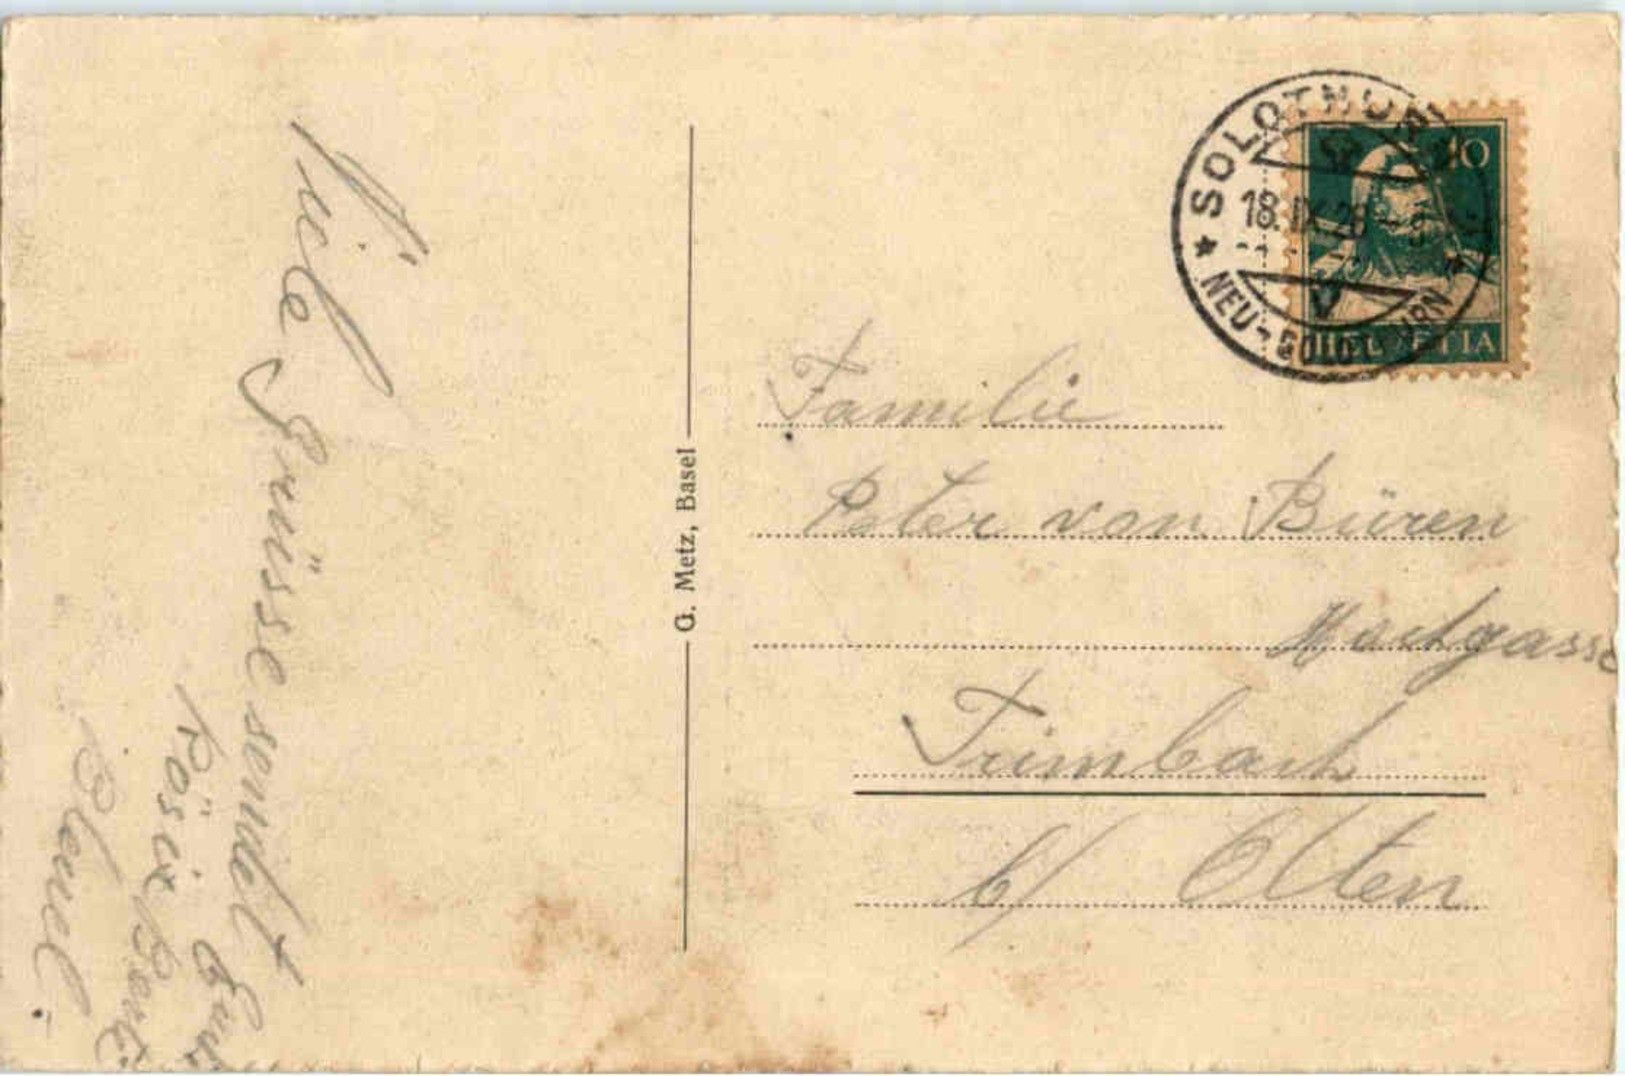 Viele Grüsse sendet Euch
Rösix Berti
Blenel.
G. Metz, Basel
SOLOTHURN
18. IX. 28
NEU-SOLOTHURN
10
HELVETIA
Familie
Peter von Büren
Trimbach
b/ Olten